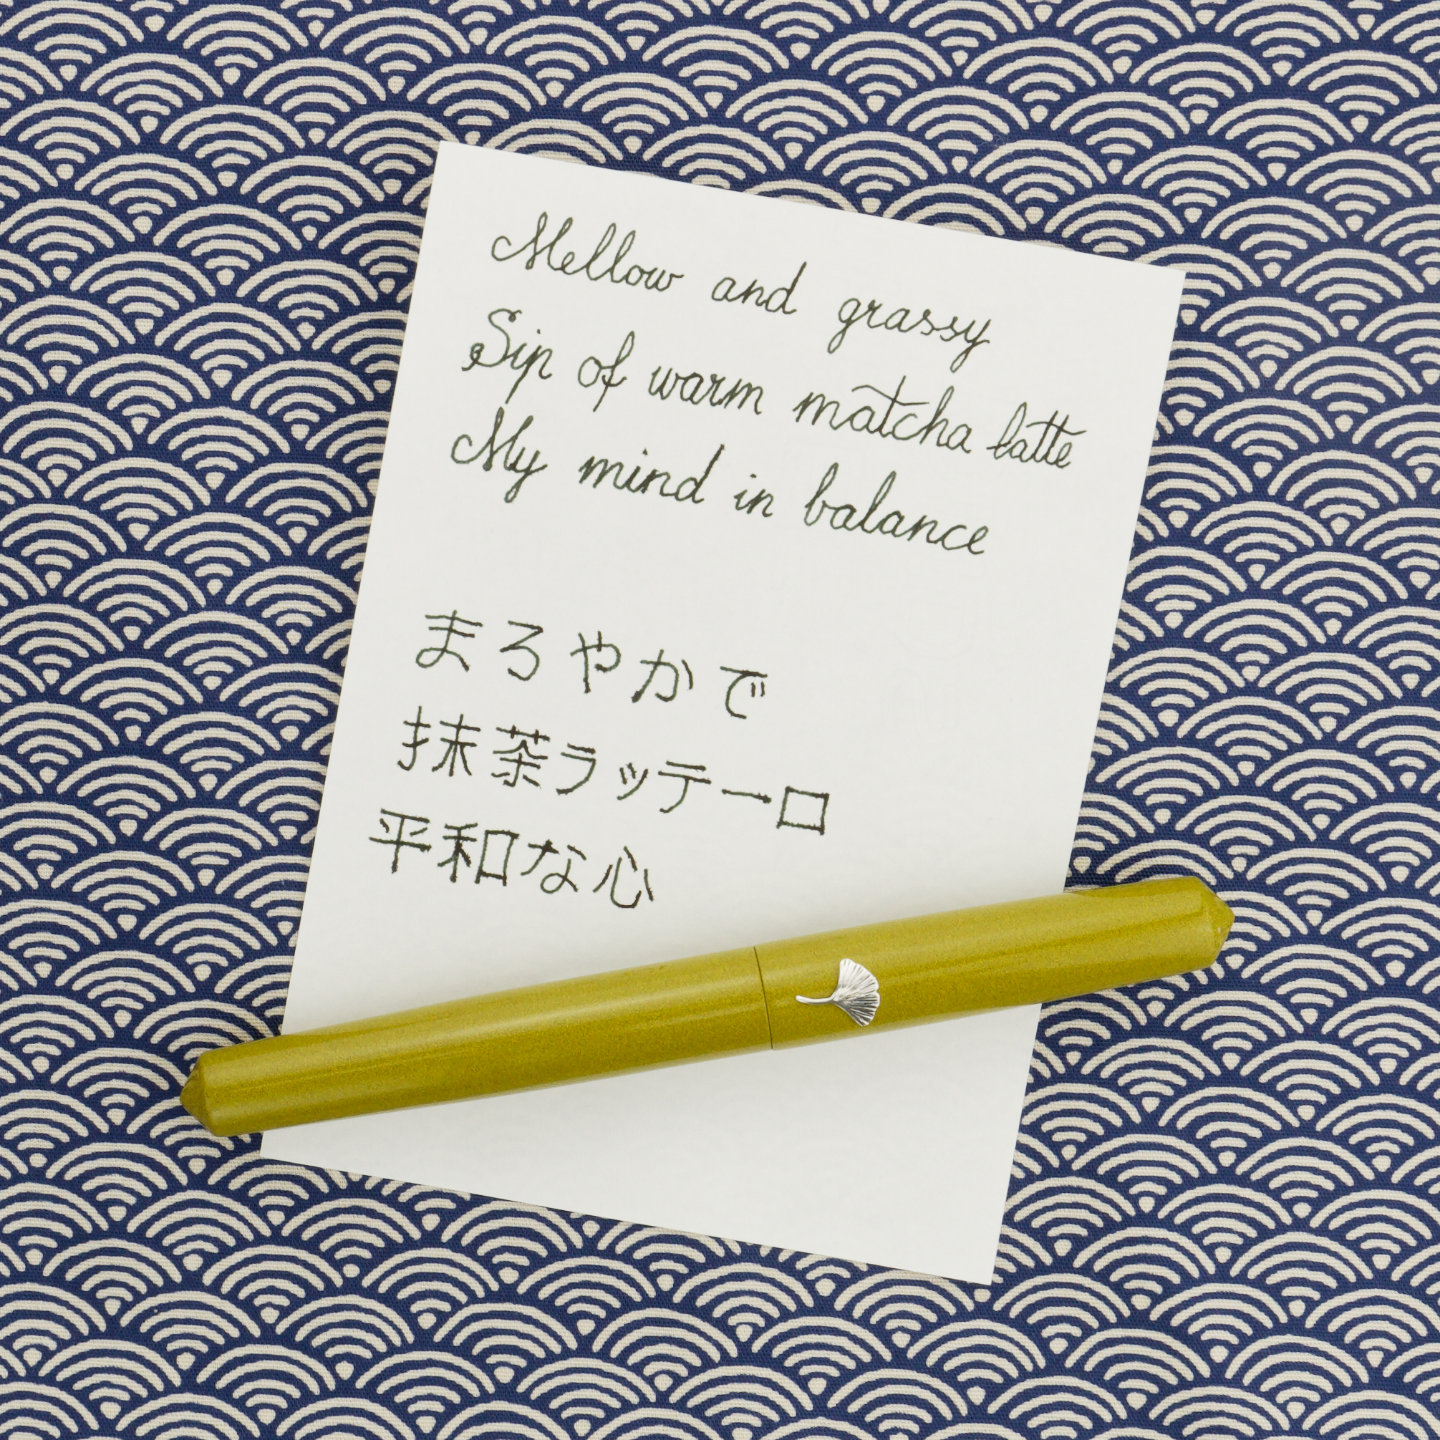 Mellow and grassy
Sip of warm matcha latte
My mind in balance
まろやかで
抹茶ラッテ一口
平和な心